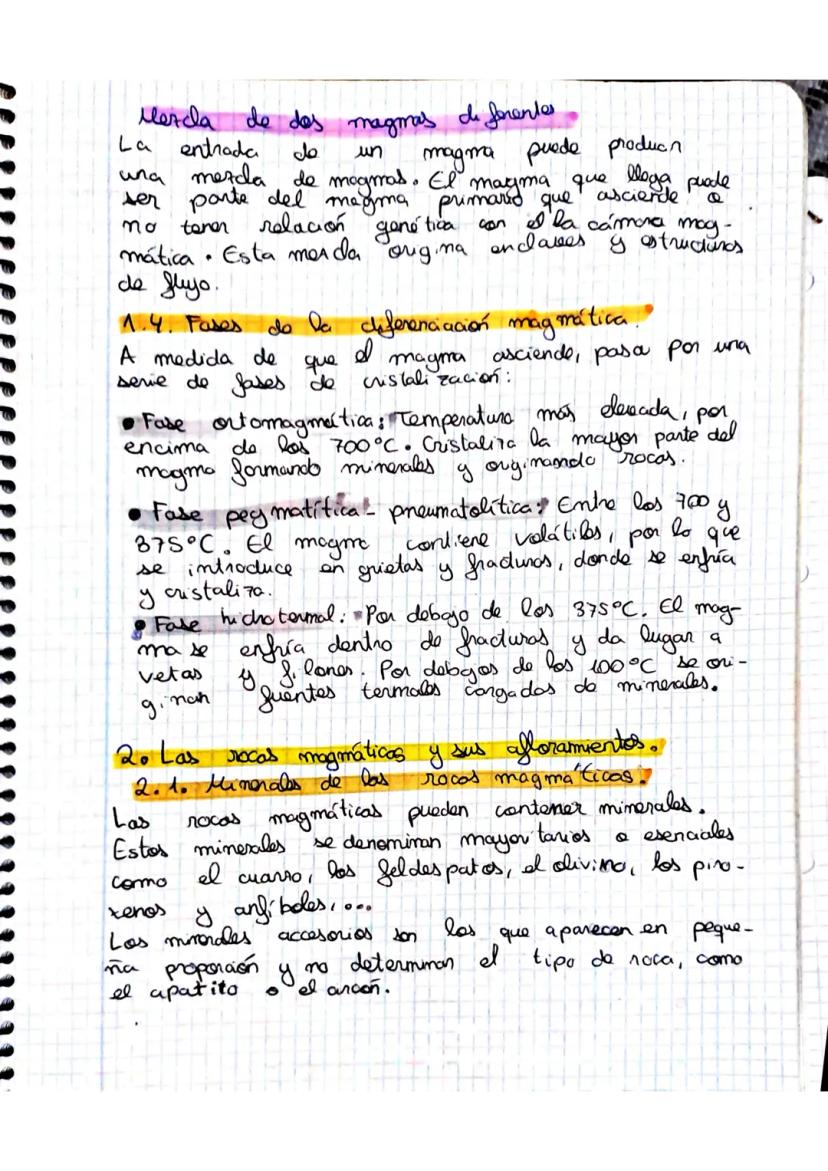 Mezcla de dos magmas diferentes
La entrada de un magma puede producir
una mezcla de magmas. El magma que llega puede
ser parte del magma primario que asciende o
no tener relación genética con el la cámara mag-
mática. Esta mezcla origina enclaves y estructuras
de flujo.
1.4. Fases de la diferenciación magmática.
A medida de que el magma asciende, pasa por una
serie de fases de cristalización:
• Fase ortomagmática: Temperatura más elevada, por
encima de los 700°C. Cristaliza la mayor parte del
magma formando minerales y originando rocas.
• Fase pegmatítica - pneumatolítica: Entre los 700 y
375°C. El magma contiene volátiles, por lo que
se introduce en grietas y fracturas, donde se enfría
y cristaliza.
• Fase hidrotermal: Por debajo de los 375°C. El mag-
ma se enfría dentro de fracturas y da lugar a
vetas y filones. Por debajos de los 100°C se ori-
ginan fuentes termales cargadas de minerales.
2. Las rocas magmáticas y sus afloramientos.
2.1. Minerales de las rocas magmáticas.
Las rocas magmáticas pueden contener minerales.
Estos minerales se denominan mayoritarios o esenciales
como el cuarzo, los feldespatos, el olivino, los piro-
xenos y anfíboles,...
Los minerales accesorios son los que aparecen en peque-
ña proporción y no determinan el tipo de roca, como
el apatito o el arcón.